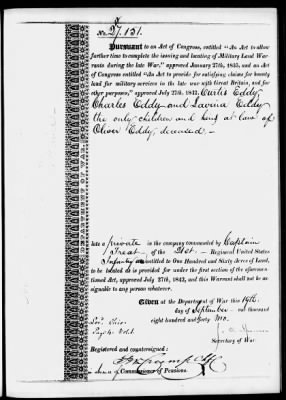 No. 27.151.
Pursuant to an Act of Congress, entitled "An Act to allow
further time to complete the issuing and locating of Military Land War-
rants during the late War," approved January 27th, 1835, and an Act
of Congress entitled "An Act to provide for satisfying claims for bounty
land for military services in the late war with Great Britain, and for
other purposes," approved July 27th, 1842, Curtis Eddy,
Charles Eddy and Lavina Eddy
the only children and heirs at law of
Oliver Eddy, deceased. —
late a private in the company commanded by Captain
Treat of the 21st. Regiment United States
Infantry entitled to One Hundred and Sixty Acres of Land,
to be located as is provided for under the first section of the aforemen-
tioned Act, approved July 27th, 1842, and this Warrant shall not be as-
signable to any person whatever.
Given at the Department of War this 19th.
day of September one thousand
eight hundred and forty two.
Secretary of War.
Registered and countersigned:
Commissioner of Pensions.